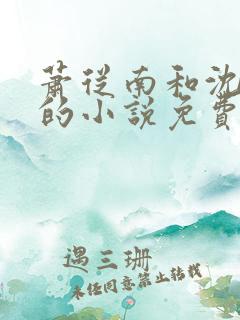 蕭從南和沈
的小說免費
遇三珊
未任同意禁止转载